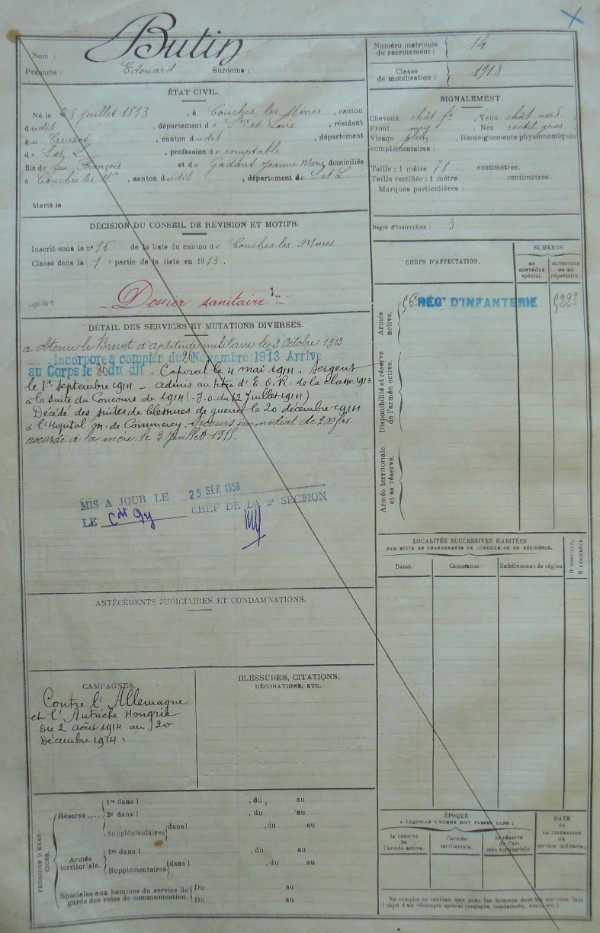 Butin
Nom :
Prénoms : Edouard Surnoms :
Numéro matricule du recrutement : 14
Classe de mobilisation : 1913
ÉTAT CIVIL.
Né le juillet 1893, à Couches les Mines, canton
dudit, département de Sne et Loire, résidant
à Creusot, canton dudit, département
de S. et L., profession de comptable
fils de François et de Jeanne Marie, domiciliés
à Couches les M., canton dudit, département de S. et L.
Marié à
SIGNALEMENT.
Cheveux chât. fé Yeux chât. verd.
Front moy Nez rect. gros
Visage plein Renseignements physionomiques
complémentaires :
Taille : 1 mètre 78 centimètres.
Taille rectifiée : 1 mètre centimètres.
Marques particulières :
Degré d'instruction : 3
DÉCISION DU CONSEIL DE RÉVISION ET MOTIFS.
Inscrit sous le n° 16 de la liste du canton de Couches-les-Mines
Classé dans la 1 partie de la liste en 1913.
Dossier sanitaire
CORPS D'AFFECTATION.
NUMÉROS
au contrôle spécial.
matricule ou au répertoire.
Armée active.
56e RÉG^t D'INFANTERIE
Disponibilité et réserve de l'armée active.
Armée territoriale et sa réserve.
DÉTAIL DES SERVICES ET MUTATIONS DIVERSES.
a obtenu le Brevet d'aptitude militaire le 3 octobre 1913
Incorporé à compter du Novembre 1913 Arrivé
au Corps le dit. Caporal le 4 mai 1914. Sergent
le 1er septembre 1914 - admis au titre d'E.O.R. de la classe 1913
à la suite du Concours de 1914 (J.O. du 12 Juillet 1914)
Décédé des suites de blessures de guerre le 20 décembre 1914
à l'Hôpital m. de Commercy. Secours immédiat de 200 frs.
accordé à la mère le 3 juillet 1915.
MIS A JOUR LE 25 SEP. 1958
LE CHEF DE LA 2e SECTION
LOCALITÉS SUCCESSIVES HABITÉES
PAR SUITE DE CHANGEMENTS DE DOMICILE OU DE RÉSIDENCE.
Dates. Communes. Subdivisions de région.
D domicile. R résidence.
ANTÉCÉDENTS JUDICIAIRES ET CONDAMNATIONS.
CAMPAGNES.
Contre l'Allemagne
et l'Autriche Hongrie
Du 2 août 1914 au 20
Décembre 1914.
BLESSURES, CITATIONS,
DÉCORATIONS, ETC.
PÉRIODES D'EXERCICES.
Réserve
1re dans l , du , au
2e dans l , du , au
Supplémentaires dans l , du au
Armée territoriale.
1re dans l , du au
Supplémentaires dans l , du au
Spéciales aux hommes du service de
garde des voies de communication.
Du au
Du au
ÉPOQUE
A LAQUELLE L'HOMME DOIT PASSER DANS :
la réserve de l'armée active.
l'armée territoriale.
la réserve de l'armée territoriale
DATE de la LIBÉRATION du service militaire.